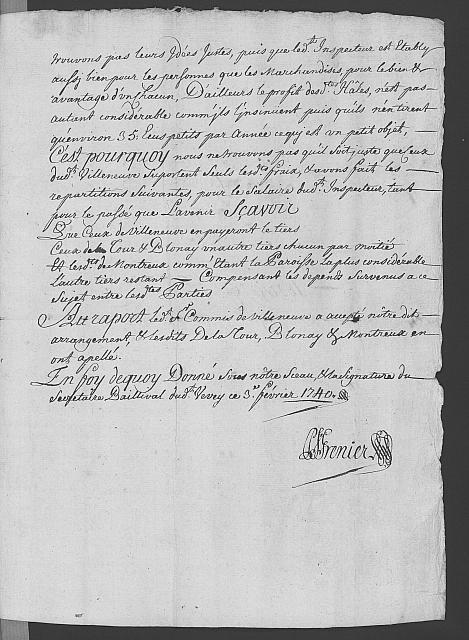 trouvons pas leurs Idées Justes, puis que led.t Inspecteur est Etably
aussy bien pour les personnes que les Marchandises, pour le bien &
avantage d'un chacun, D'ailleurs le profit des d.tes Hâles, n'est pas
autant considerable comm'ils l'insinuent puis qu'ils n'en tirent
qu'environ 35. Ecus petits par Année ce qui est un petit objet,
C'est pourquoy nous ne trouvons pas qu'il soit juste que ceux
dud.t Villeneuve suportent seuls lesd.ts fraix, & avons fait les
repartitions suivantes, pour le salaire dud.t Inspecteur, tant
pour le passé que L'avenir Sçavoir
Que Ceux de Villeneuve en payeront le tiers
Ceux de la Tour & Blonay un autre tiers chacun par moitié
Et lesd.ts de Montreux comm'Etant la Paroisse la plus considerable
l'autre tiers restant Compensant les depends survenus a ce
Sujet entre lesd.tes Parties
Au raport led.t Commis de Villeneuve a accepté nôtre dit
arrangement, & lesdits De la Tour, Blonay & Montreux en
ont apellé.
En foy dequoy Donné sous nôtre Sceau, & la Signature du
Secretaire Baillival dud.t Vevey ce 3.e fevrier 1740.
Grenier